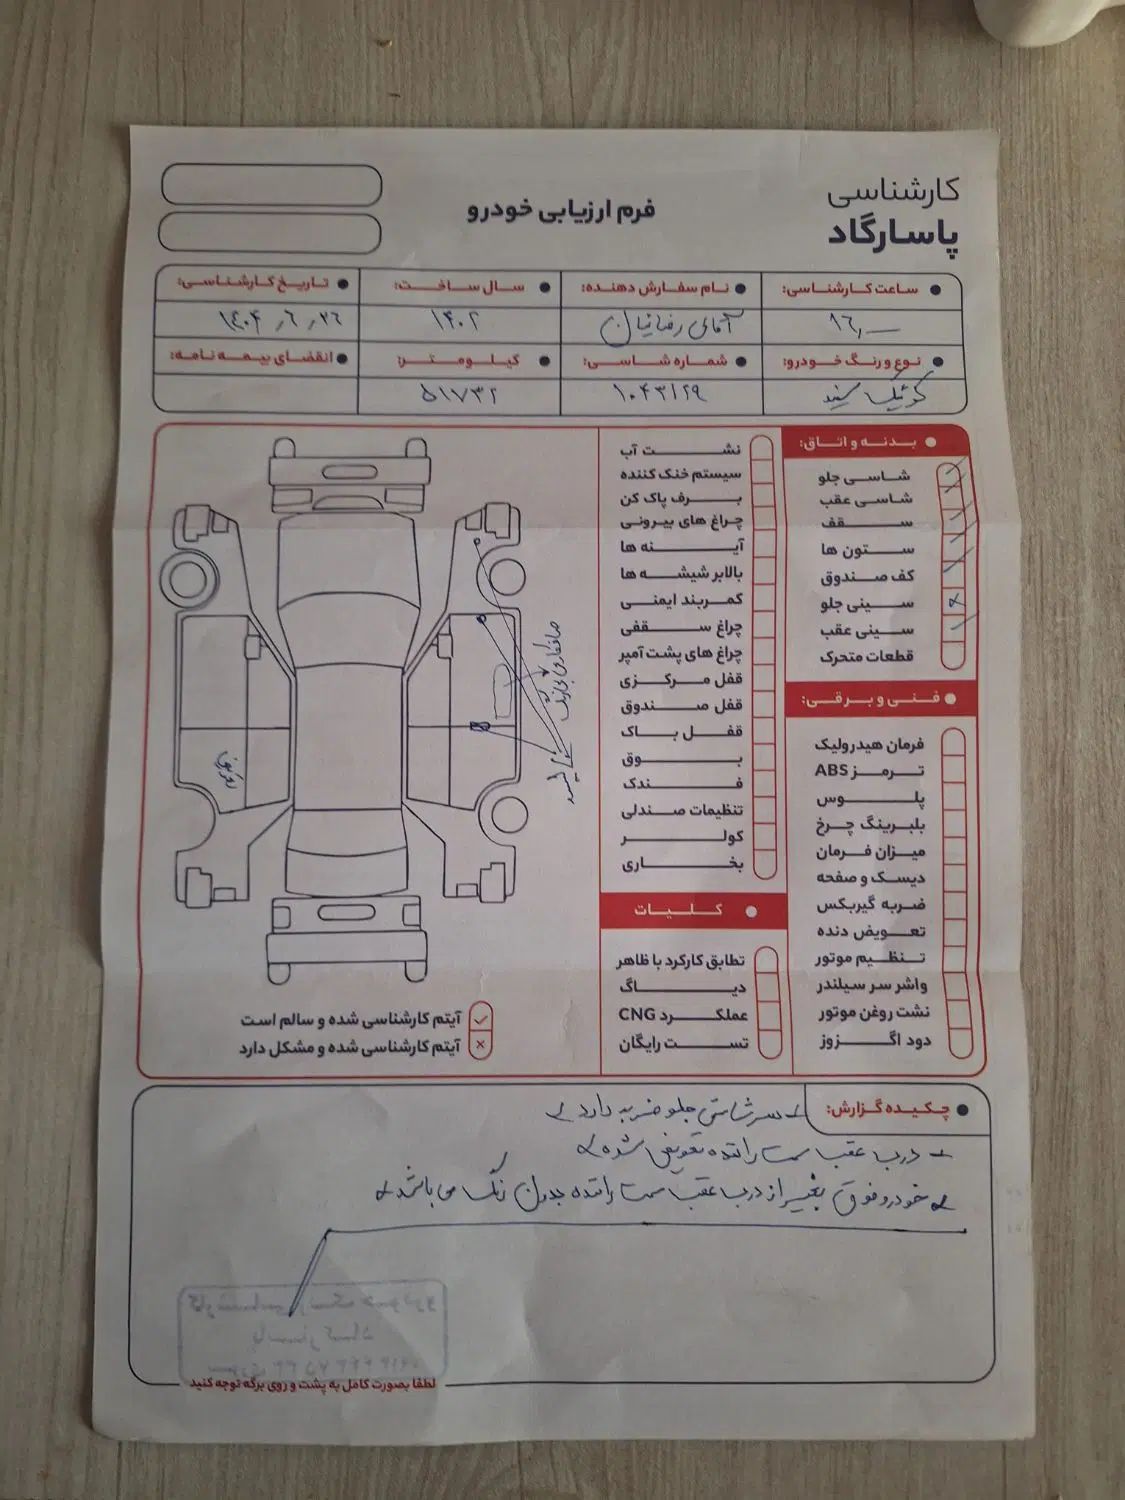 کارشناسی
پاسارگاد
فرم ارزیابی خودرو
ساعت کارشناسی:
نام سفارش دهنده:
سال ساخت:
تاریخ کارشناسی:
۱۶,
آقای رضائیان
۱۴۰۲
۱۴۰۴٫۶٫۲۶
نوع و رنگ خودرو:
شماره شاسی:
کیلومتر:
انقضای بیمه نامه:
کوئیک سفید
۱۰۴۳۱۲۹
۵۱۷۳۲
بدنه و اتاق:
شاسی جلو
شاسی عقب
سقف
ستون ها
کف صندوق
سینی جلو
سینی عقب
قطعات متحرک
فنی و برقی:
فرمان هیدرولیک
ترمز ABS
پلوس
بلبرینگ چرخ
میزان فرمان
دیسک و صفحه
ضربه گیربکس
تعویض دنده
تنظیم موتور
واشر سر سیلندر
نشت روغن موتور
دود اگزوز
نشت آب
سیستم خنک کننده
برف پاک کن
چراغ های بیرونی
آینه ها
بالابر شیشه ها
کمربند ایمنی
چراغ سقفی
چراغ های پشت آمپر
قفل مرکزی
قفل صندوق
قفل باک
بوق
فندک
تنظیمات صندلی
کولر
بخاری
کلیات
تطابق کارکرد با ظاهر
دیاگ
عملکرد CNG
تست رایگان
صافکاری بی‌رنگ
تعویض
آیتم کارشناسی شده و سالم است
آیتم کارشناسی شده و مشکل دارد
چکیده گزارش:
سرشاسی جلو ضربه دارد
درب عقب سمت راننده تعویض شده
خودرو فوق بغیر از درب عقب سمت راننده بدون رنگ می باشد
لطفا بصورت کامل به پشت و روی برگه توجه کنید